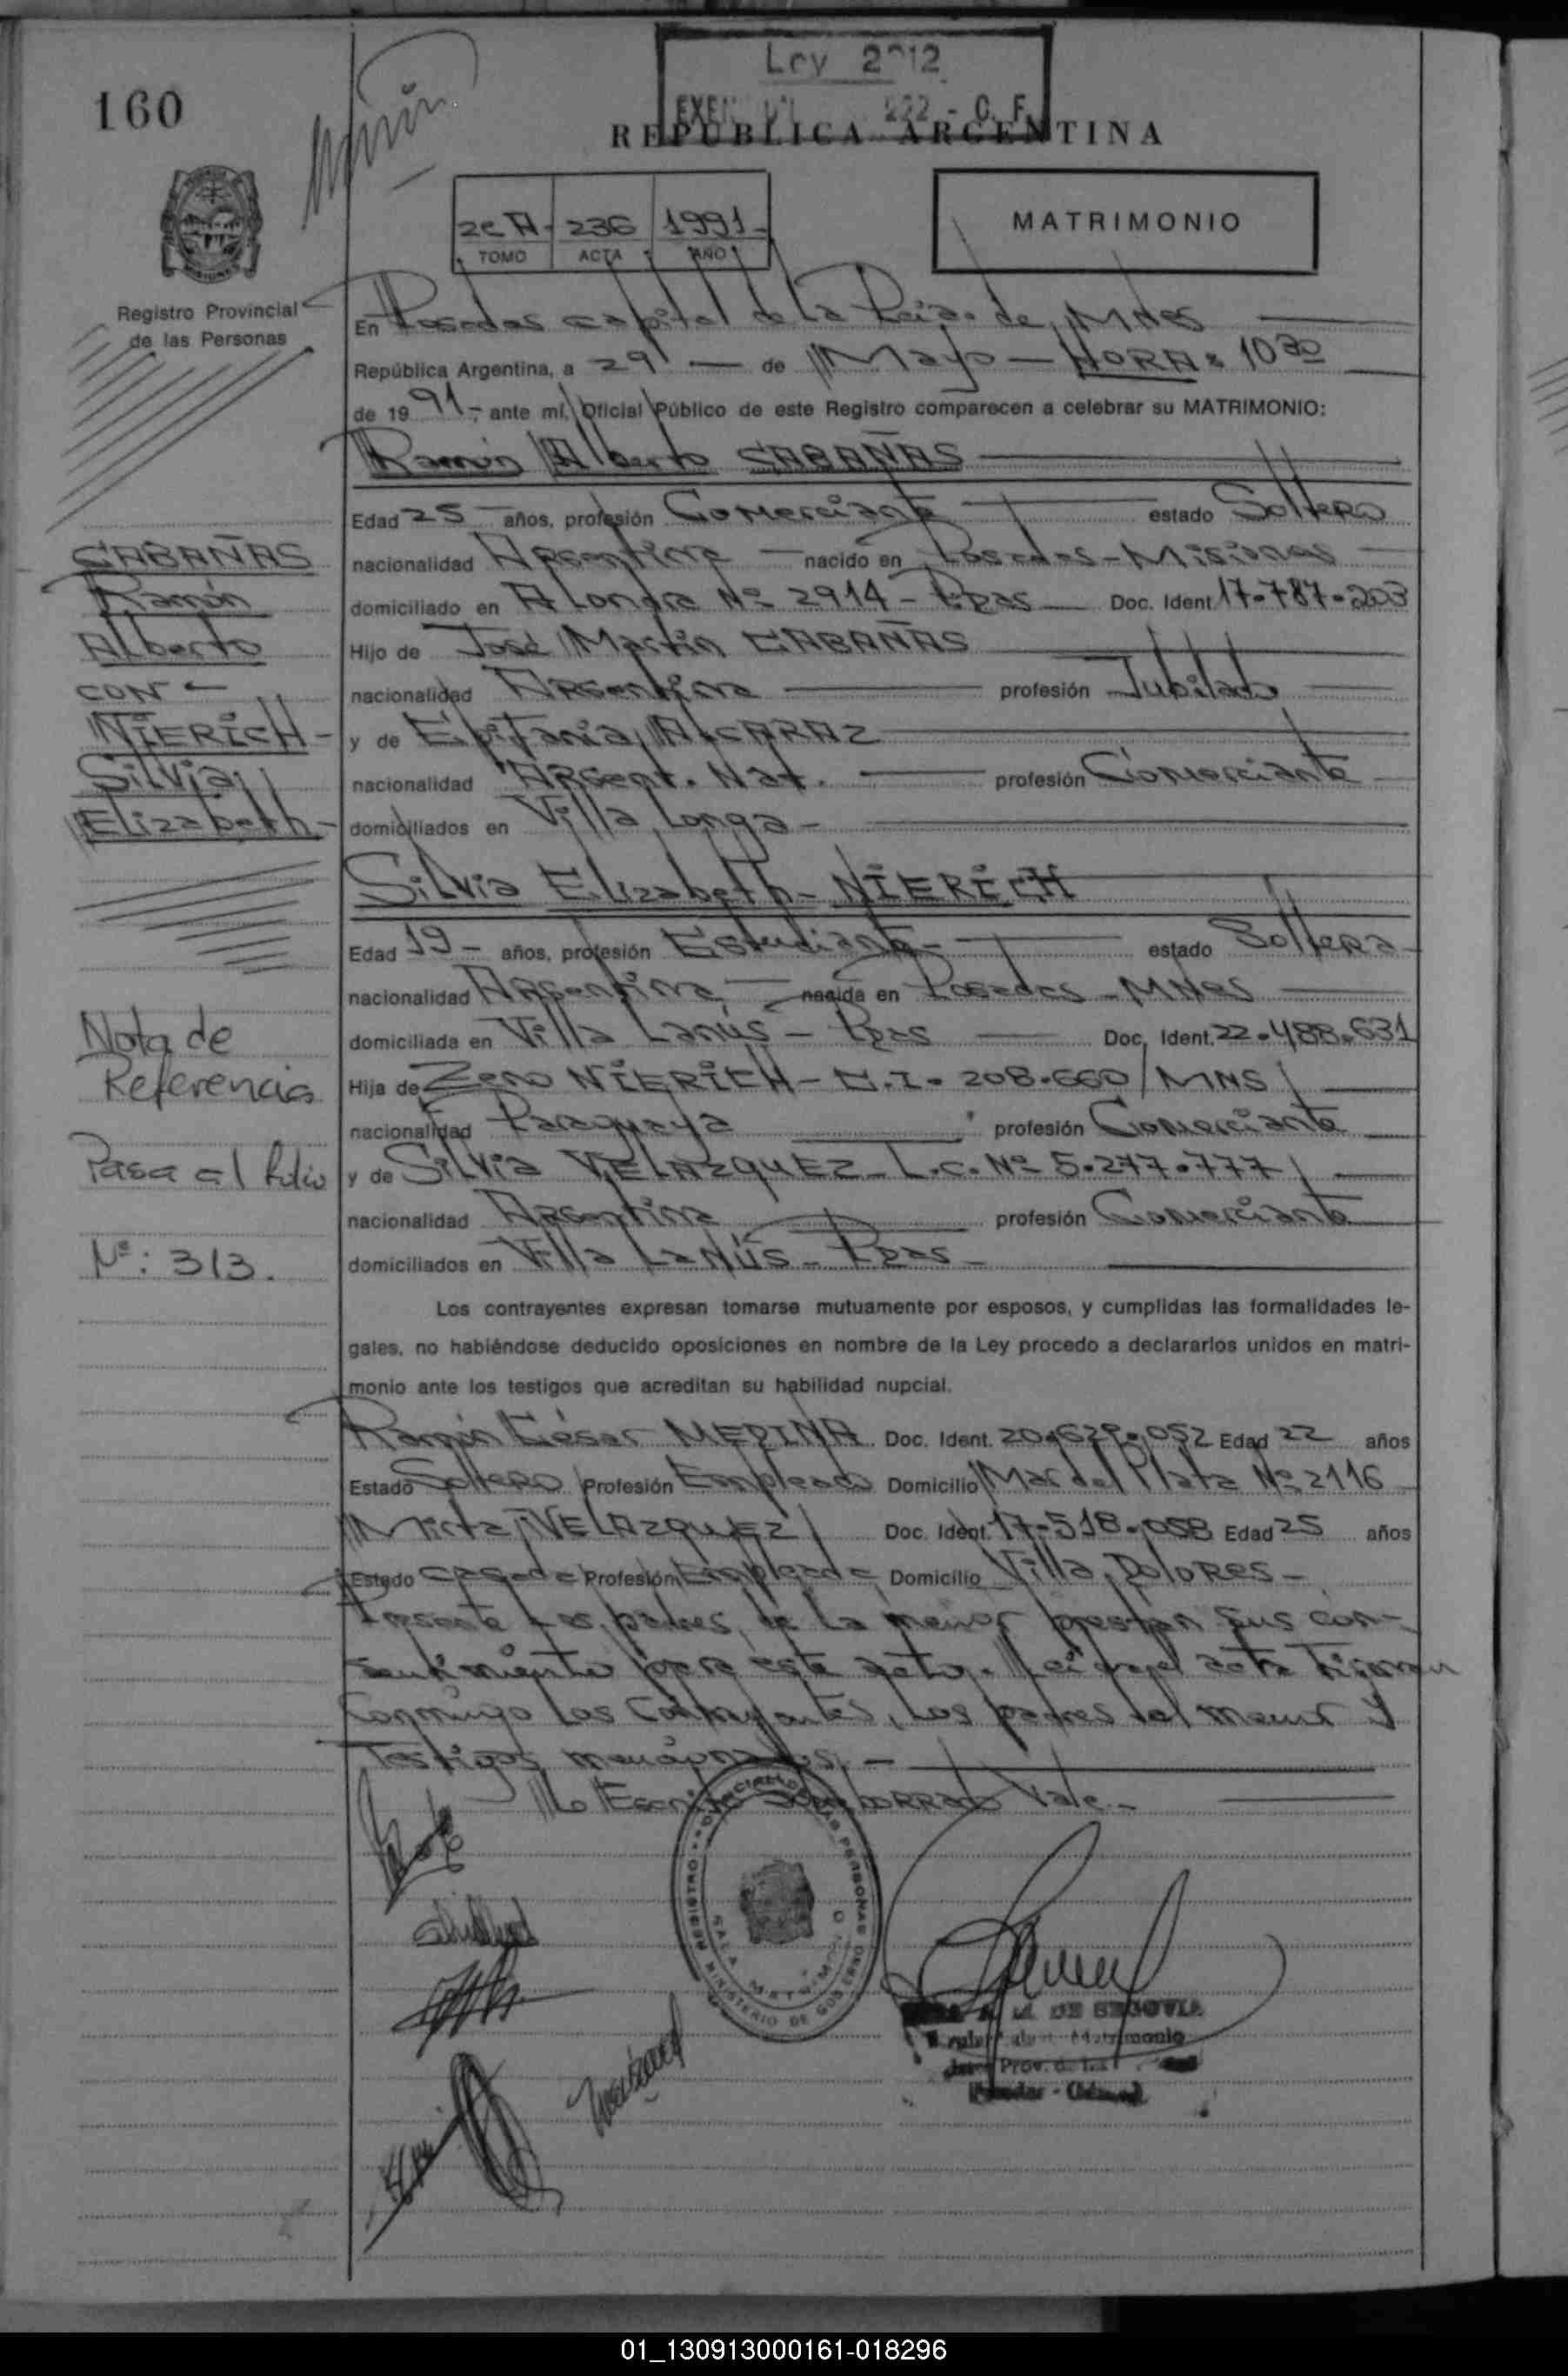 160
Ley 2212
REPUBLICA ARGENTINA
2c A - 236 1991-
TOMO ACTA AÑO
MATRIMONIO
Registro Provincial
de las Personas
En Posadas capital de la Pcia. de Mnes
República Argentina, a 29 — de Mayo — HORA: 10 30
de 1991.- ante mí, Oficial Público de este Registro comparecen a celebrar su MATRIMONIO:
Ramón Alberto CABAÑAS
Edad 25 años, profesión Comerciante estado Soltero
nacionalidad Argentina — nacido en Posadas - Misiones
domiciliado en Alondra Nº 2914 - Ppas Doc. Ident. 17.787.203
Hijo de José Martín CABAÑAS
nacionalidad Argentina profesión Jubilado
y de Epifania ALCARAZ
nacionalidad Argent. Nat. profesión Comerciante
domiciliados en Villa Longa -
Silvia Elizabeth - NIERICH
Edad 19 - años, profesión Estudiante - estado Soltera -
nacionalidad Argentina — nacida en Posadas - Mnes
domiciliada en Villa Lanús - Ppas Doc. Ident. 22.488.631
Hija de Zeno NIERICH - C.I. 208.660/MNS
nacionalidad Paraguaya profesión Comerciante
y de Silvia VELAZQUEZ - L.C. Nº 5.277.777
nacionalidad Argentina profesión Comerciante
domiciliados en Villa Lanús - Ppas -
Los contrayentes expresan tomarse mutuamente por esposos, y cumplidas las formalidades le-
gales, no habiéndose deducido oposiciones en nombre de la Ley procedo a declararlos unidos en matri-
monio ante los testigos que acreditan su habilidad nupcial.
Ramón César MEDINA Doc. Ident. 20.629.052 Edad 22 años
Estado Soltero Profesión Empleado Domicilio Mar del Plata Nº 2116
Mirta VELAZQUEZ Doc. Ident. 17.518.058 Edad 25 años
Estado casada Profesión Empleada Domicilio Villa Dolores -
Presente Los padres de la menor prestan sus con-
sentimiento para este acto. Leída el acta Firman
conmigo los Contrayentes, Los padres del menor y
Testigos mencionados. -
Lo Escrito sobreborrado Vale.-
CABAÑAS
Ramón
Alberto
CON -
NIERICH -
Silvia
Elizabeth -
Nota de
Referencia
Pasa al folio
Nº: 313.
REGISTRO PERSONAS
SALA MATRIMONIO
MINISTERIO DE GOBIERNO
DE SEGOVIA
Matrimonio
01_130913000161-018296